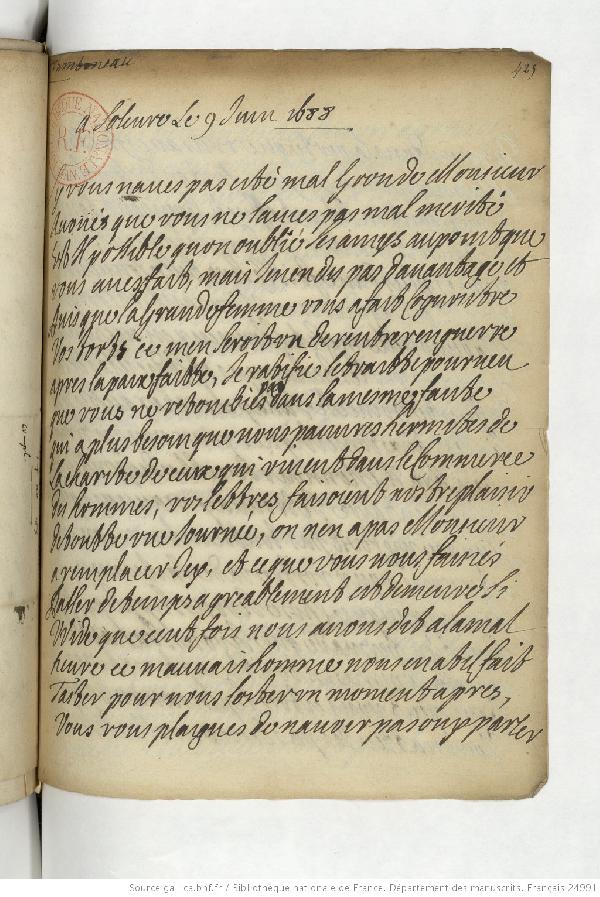 Tambonneau
425
a Soleure Le 9 Juin 1688
Sy vous naues pas esté mal Gronde Monsieur
Auoués que vous ne laues pas mal merité
Est Il possible quon oublie les amys au point que
vous auez fait, mais Je nen dis pas dauantage et
Puis que la Grande femme vous a fait Cognoitre
Vos torts ce men seroit un de rentrer en guerre
apres la paix faitte, Je ratifie le traitté pourueu
que vous ne retombiés pas dans la mesme faute
qui a plus besoin que nous pauures hermittes de
La charité de ceux qui viuent dans le Commerce
des hommes, vos lettres faisoient nostre plaisir
de toutte vne Journée, on nen a pas Monsieur
a remplacer Icy, et ce que vous nous faisiés
Passer de temps agreablement est demeuré si
Vuide que cent fois nous auons dit a la mal
heure ce mauuais homme nous en a til fait
Taster pour nous loster un moment apres,
Vous vous plaignes de nauoir pas ouy parler
Source gallica.bnf.fr / Bibliothèque nationale de France. Département des manuscrits. Français 24991